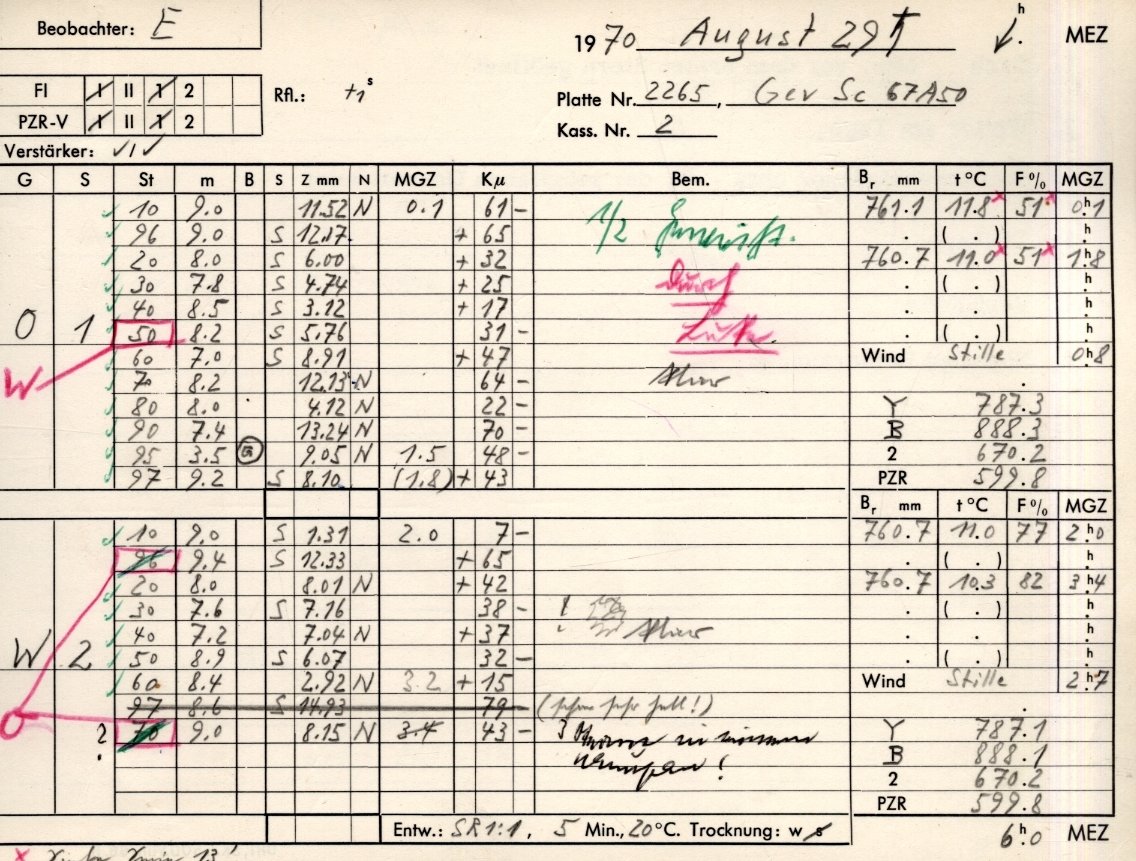 Beobachter: E
1970 August 29 h MEZ
FI I II 1 2 Rfl.: +1 s
Platte Nr. 2265, Gev Sc 67A50
PZR-V I II 1 2
Kass. Nr. 2
Verstärker: √ / √
G S St m B S Z mm N MGZ Kμ Bem. Br mm t°C F% MGZ
10 9.0 11.52 N 0.1 61 - 1/2 761.1 11.8x 51x 0h1
96 9.0 S 12.17 + 65 . ( . ) h
20 8.0 S 6.00 + 32 760.7 11.0x 51x 1h8
30 7.8 S 4.74 + 25 Durch . ( . ) h
40 8.5 S 3.12 + 17 . . h
O 1 50 8.2 S 5.76 31 - . ( . ) h
60 7.0 S 8.91 + 47 Wind Stille 0h8
W 70 8.2 12.13 N 64 - .
80 8.0 4.12 N 22 - Y 787.3
90 7.4 13.24 N 70 - B 888.3
95 3.5 G 9.05 N 1.5 48 - 2 670.2
97 9.2 S 8.10 (1.8) + 43 PZR 599.8
Br mm t°C F% MGZ
10 9.0 S 1.31 2.0 7 - 760.7 11.0 77 2h0
96 9.4 S 12.33 + 65 . ( . ) h
20 8.0 8.01 N + 42 760.7 10.3 82 3h4
30 7.6 S 7.16 38 - ! . ( . ) h
40 7.2 7.04 N + 37 . . h
W 2 50 8.9 S 6.07 32 - . ( . ) h
60 8.4 2.92 N 3.2 + 15 Wind Stille 2h7
97 8.6 S 14.93 79 - (schon sehr hell!) .
O 2 70 9.0 8.15 N 3.4 43 - Y 787.1
B 888.1
2 670.2
PZR 599.8
Entw.: SR 1:1, 5 Min., 20°C. Trocknung: w s
6h0 MEZ
x 13